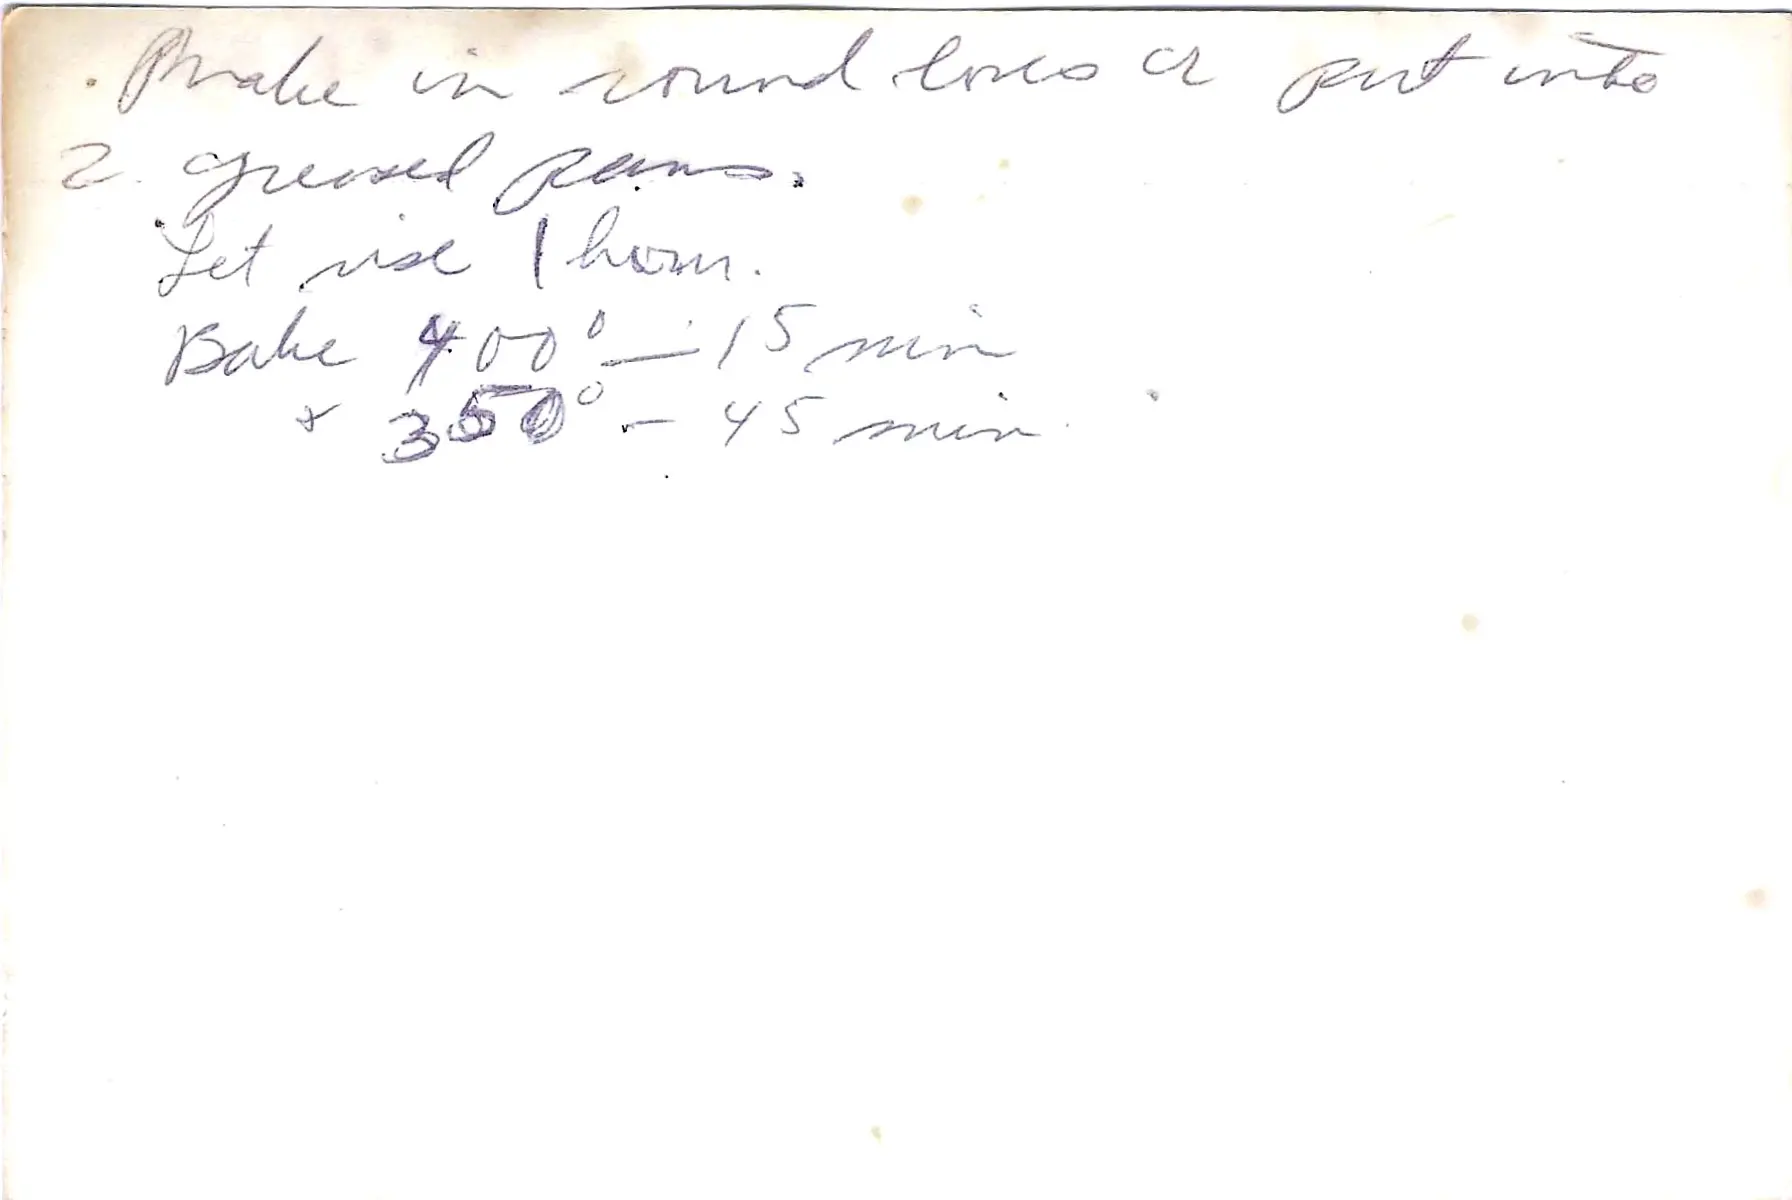 Make in round loves or put into
2 greased pans.
Let rise 1 hour.
Bake 400° — 15 min
+ 350° - 45 min